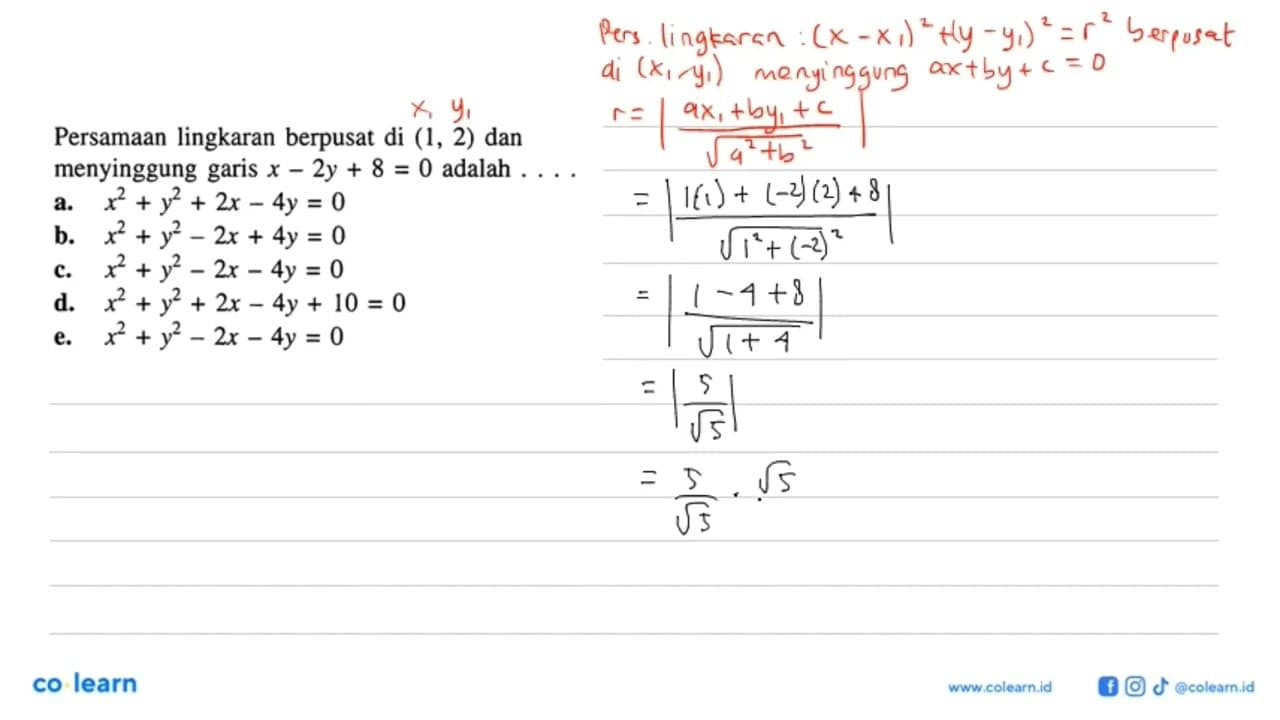 Pers. lingkaran : (x - x₁)² + (y - y₁)² = r² berpusat
di (x₁, y₁) menyinggung ax + by + c = 0
x₁ y₁
Persamaan lingkaran berpusat di (1, 2) dan
menyinggung garis x − 2y + 8 = 0 adalah . . . .
a. x² + y² + 2x − 4y = 0
b. x² + y² − 2x + 4y = 0
c. x² + y² − 2x − 4y = 0
d. x² + y² + 2x − 4y + 10 = 0
e. x² + y² − 2x − 4y = 0
r = | (ax₁ + by₁ + c) / √(a² + b²) |
= | (1(1) + (-2)(2) + 8) / √(1² + (-2)²) |
= | (1 - 4 + 8) / √(1 + 4) |
= | 5 / √5 |
= 5/√5 . √5
co learn
www.colearn.id
@colearn.id